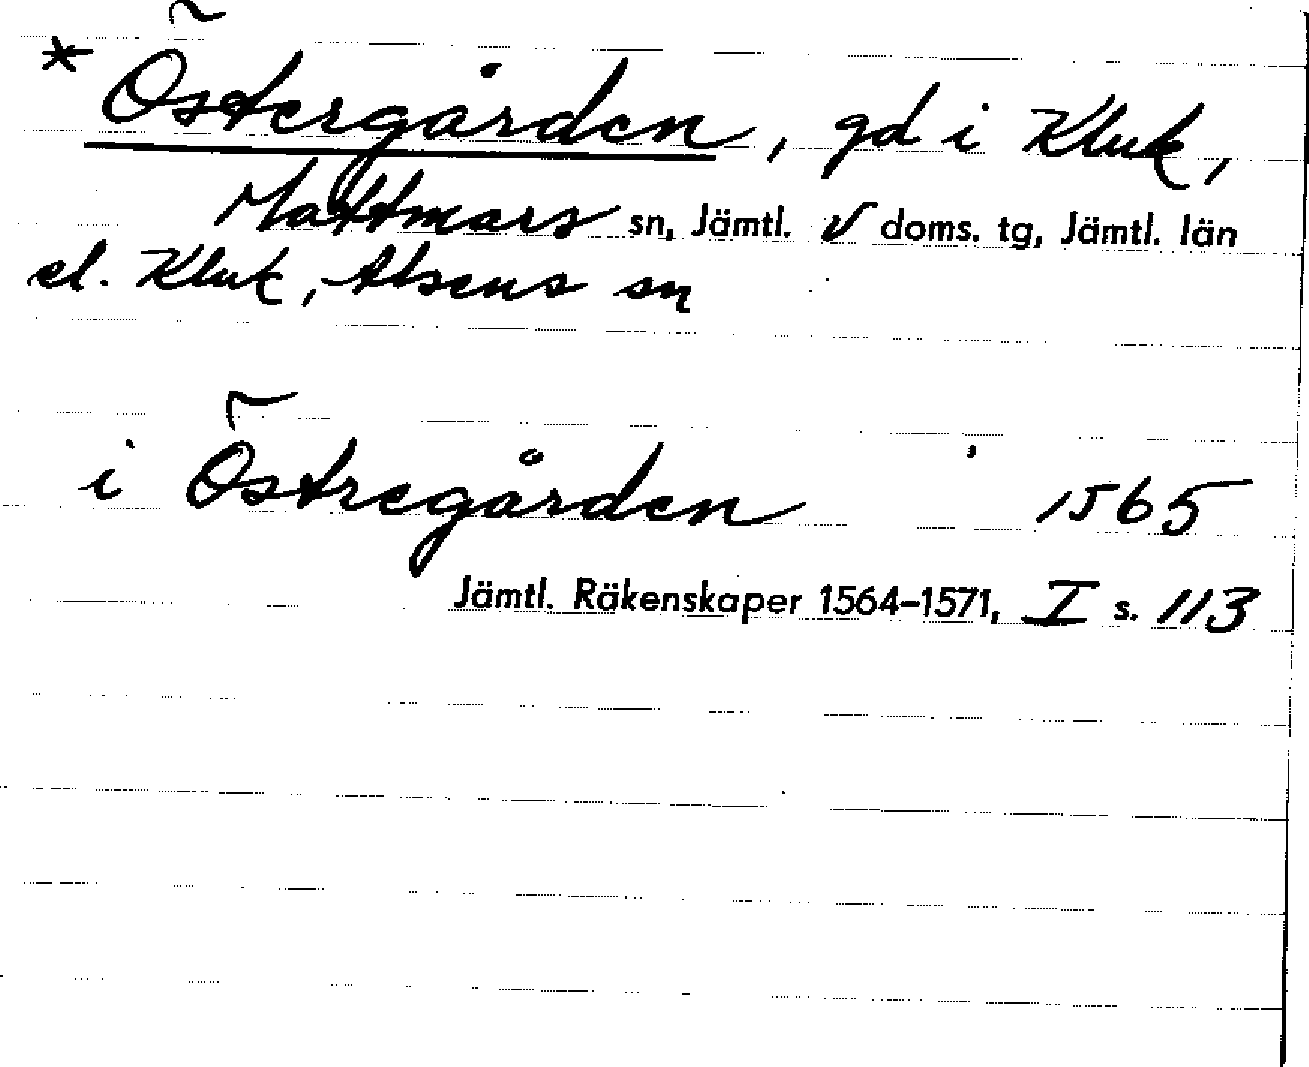 * Östergården, gd i Kluk,
Mattmars sn, Jämtl. V doms. tg, Jämtl. län
el. Kluk, Alsens sn
i Östregården 1565
Jämtl. Räkenskaper 1564-1571, I s. 113